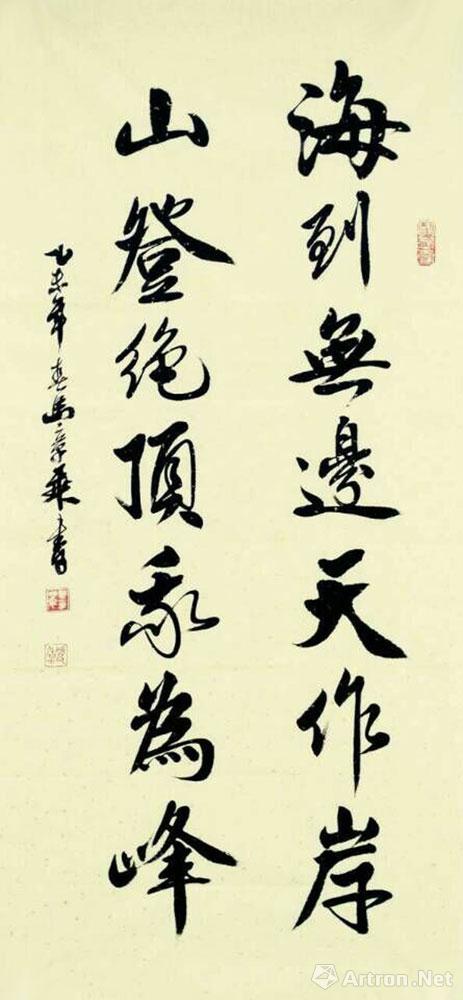 海到無邊天作岸
山登绝頂我為峰
乙未年春
書
Artron.Net